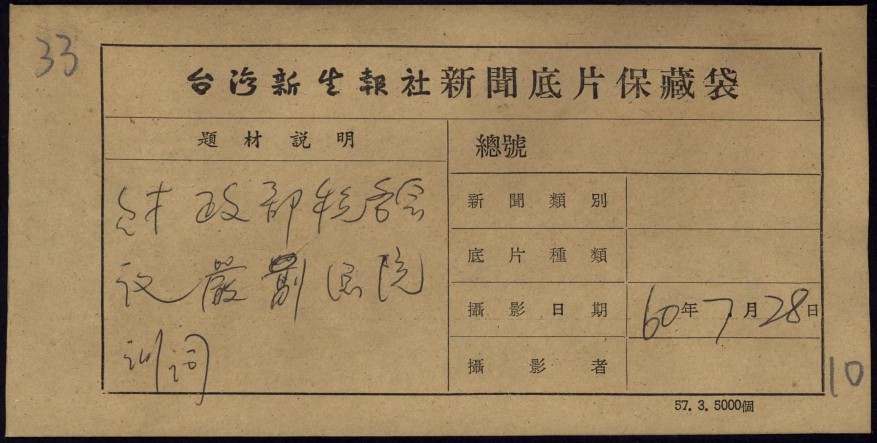 33
台灣新生報社新聞底片保藏袋
題材説明
財政部稅務會
議嚴副總統
訓詞
總號
新聞類別
底片種類
攝影日期 60年7月28日
攝影者
10
57. 3. 5000個